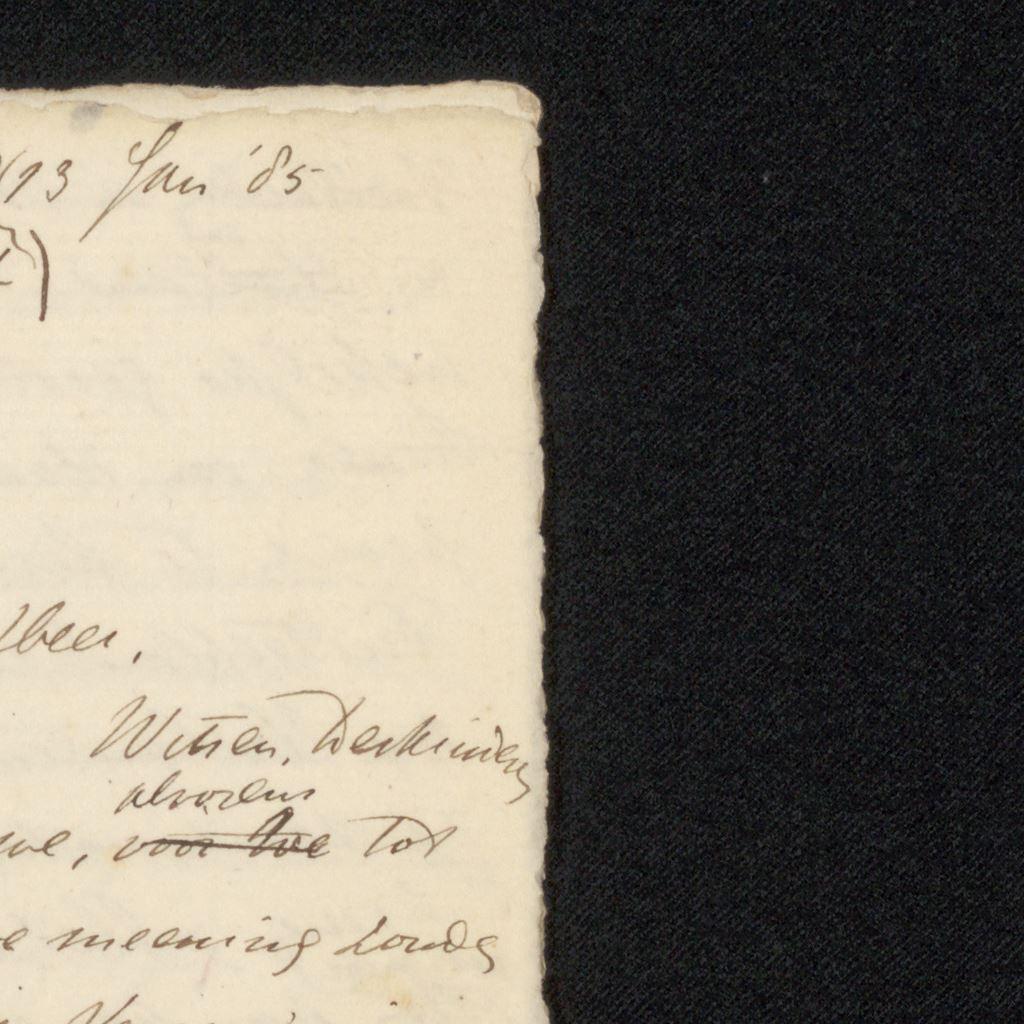 13 Jan '85
Witsen, Derkinderen
alvorens
we, voor we tot
meening zoude